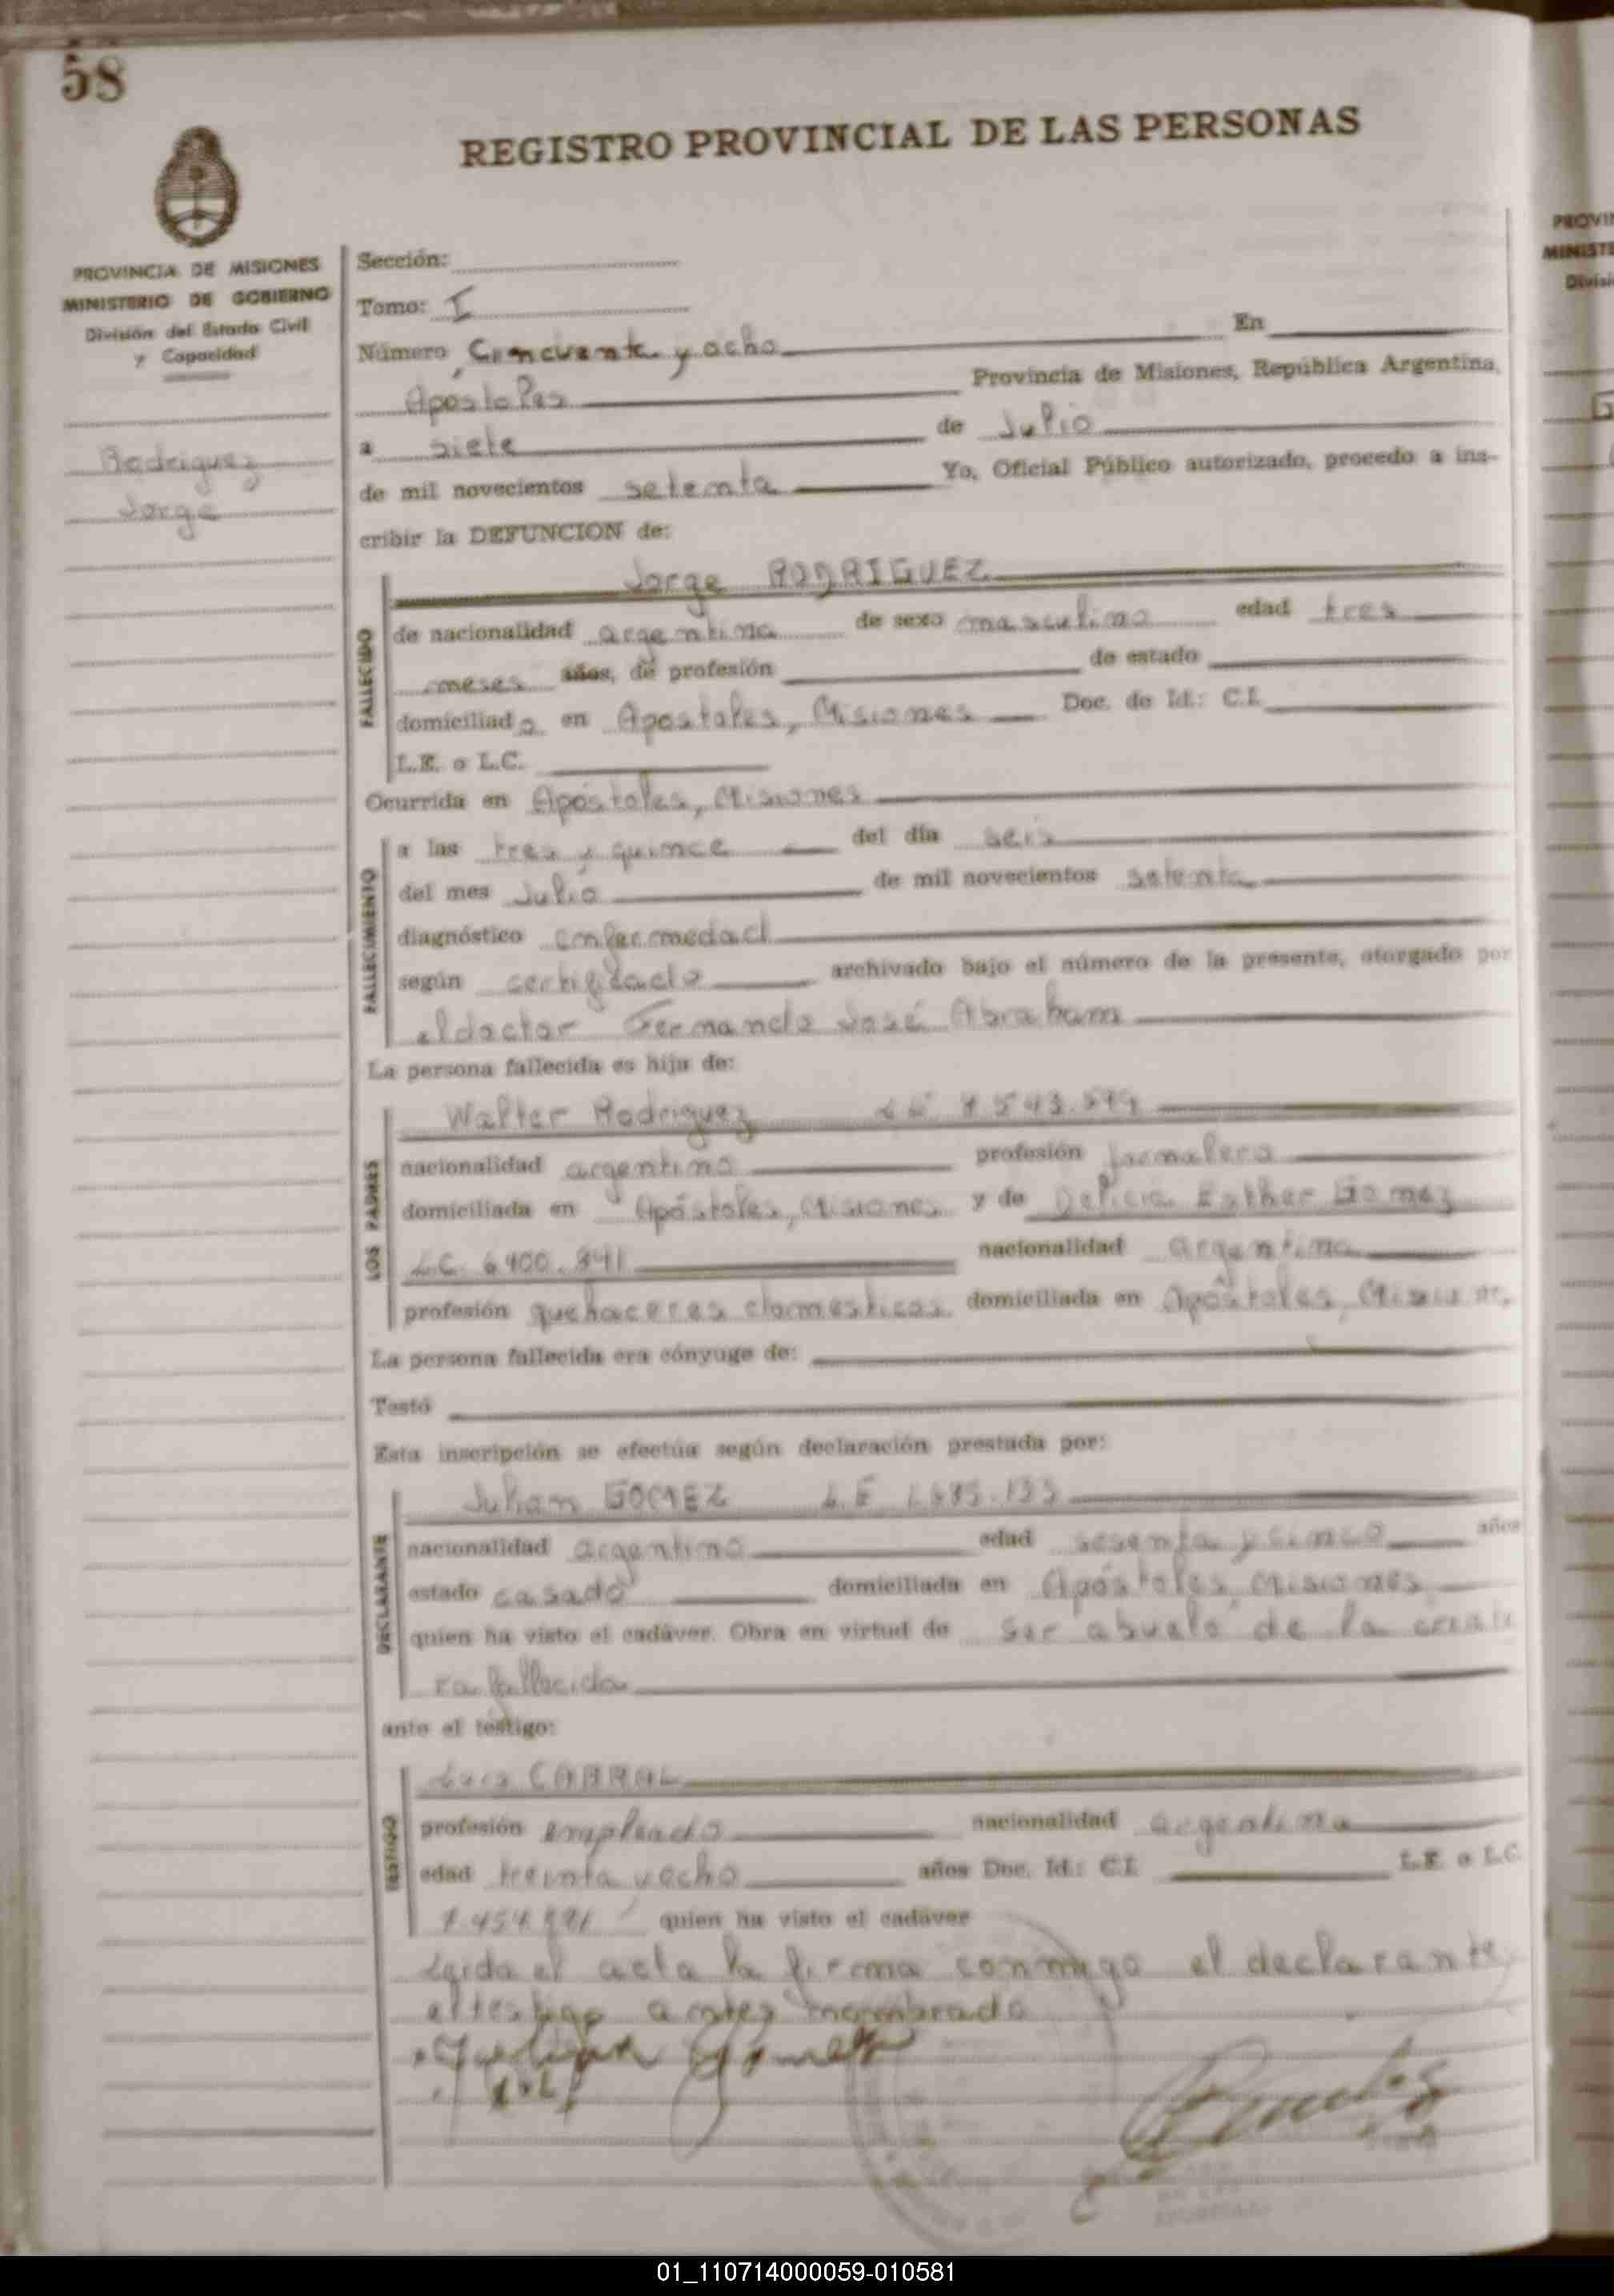 58
REGISTRO PROVINCIAL DE LAS PERSONAS
PROVINCIA DE MISIONES
MINISTERIO DE GOBIERNO
División del Estado Civil
y Capacidad
Rodriguez
Jorge
Sección:
Tomo: I
Número Cincuenta y ocho En
Apostoles Provincia de Misiones, República Argentina,
a siete de Julio
de mil novecientos setenta Yo, Oficial Público autorizado, procedo a ins-
cribir la DEFUNCION de:
Jorge RODRIGUEZ
FALLECIDO
de nacionalidad argentina de sexo masculino edad tres
meses años, de profesión de estado
domiciliado en Apostoles, Misiones Doc. de Id.: C.I.
L.E. o L.C.
Ocurrida en Apóstoles, Misiones
FALLECIMIENTO
a las tres y quince del día seis
del mes Julio de mil novecientos setenta
diagnóstico enfermedad
según certificado archivado bajo el número de la presente, otorgado por
el doctor Fernando José Abraham
La persona fallecida es hija de:
LOS PADRES
Walter Rodriguez
nacionalidad argentino profesión jornalero
domiciliada en Apóstoles, Misiones y de Delicia Esther Gomez
LC. 6400.841 nacionalidad argentina
profesión quehaceres domesticos domiciliada en Apóstoles,
La persona fallecida era cónyuge de:
Testó
Esta inscripción se efectúa según declaración prestada por:
DECLARANTE
Julian GOMEZ L.E
nacionalidad argentino edad sesenta y cinco años
estado casado domiciliada en Apóstoles, Misiones
quien ha visto el cadáver. Obra en virtud de ser abuelo de la criatu
ra fallecida
ante el testigo:
TESTIGO
Luis CABRAL
profesión empleado nacionalidad argentina
edad treinta y ocho años Doc. Id.: C.I. L.E. o L.C.
quien ha visto el cadáver
Leida el acta la firma conmigo el declarante,
el testigo antes nombrado
Julian Gomez
01_110714000059-010581